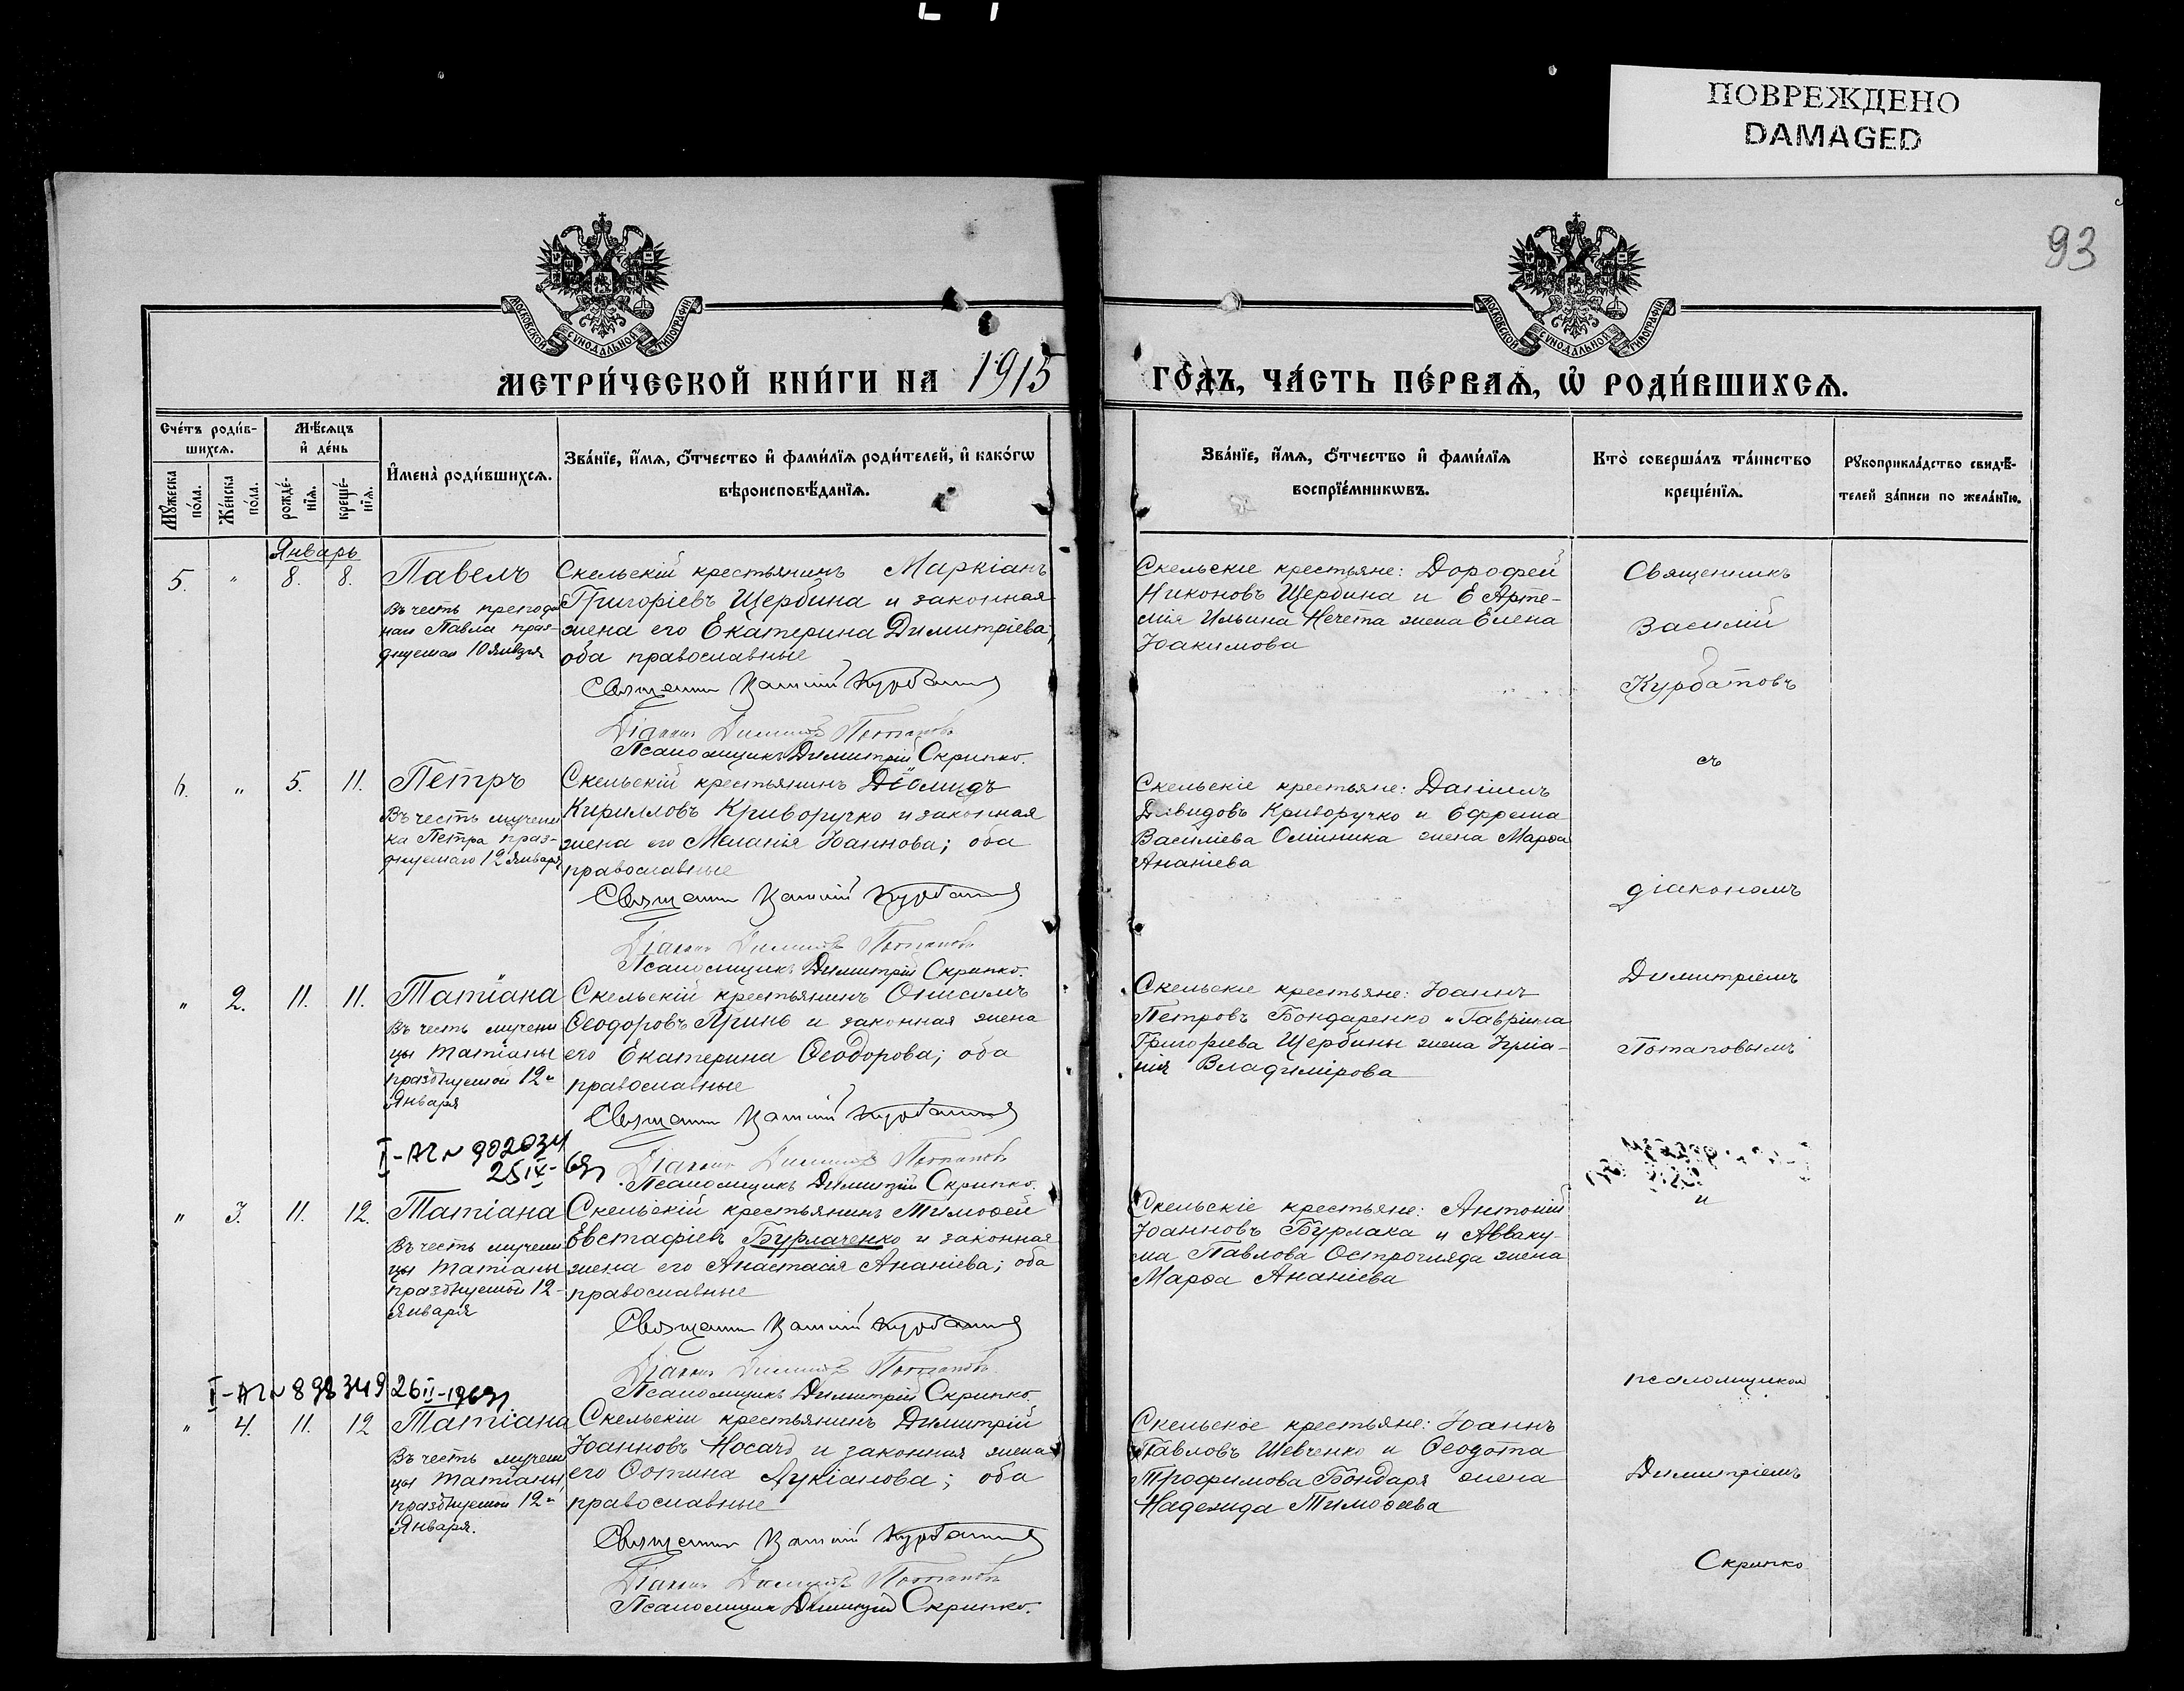 ПОВРЕЖДЕНО
DAMAGED
93
МОСКОВСКОЙ СѴНОДАЛЬНОЙ ТИПОГРАФІИ
МОСКОВСКОЙ СѴНОДАЛЬНОЙ ТИПОГРАФІИ
МЕТРИ́ЧЕСКОЙ КНИ́ГИ НА 1915
ГО́ДЪ, ЧА́СТЬ ПЕ́РВАѦ, Ѡ҆ РОДИ́ВШИХСѦ.
Сче́тъ роди́в-
шихсѧ.
Мꙋ́жеска
по́ла.
Же́нска
по́ла.
Мѣ́сѧцъ
и҆ де́нь
рожде́-
нїѧ.
креще́-
нїѧ.
И҆мена̀ роди́вшихсѧ.
Зва́нїе, и҆́мѧ, ѻ҆́тчество и҆ фами́лїѧ роди́телей, и҆ како́гѡ
вѣроисповѣ́данїѧ.
Зва́нїе, и҆́мѧ, ѻ҆́тчество и҆ фами́лїѧ
воспрїе́мникѡвъ.
Кто̀ соверша́лъ та́инство
креще́нїѧ.
Рꙋкоприкла́дство свидѣ́-
телей за́писи по жела́нїю.
Январь
5. " 8. 8.
Павелъ
Въ честь преподо
наго Павла праз-
днуемаго 10 января
Скельскій крестьянинъ Маркіанъ
Григоріевъ Щербина и законная
жена его Екатерина Димитріева;
оба православные
Священникъ Василій Курбатовъ
Діаконъ Димитрій Потаповъ
Псаломщикъ Димитрій Скрипко.
Скельскіе крестьяне: Дорофей
Никоновъ Щербина и Е Арте-
мія Ильина Нечета жена Елена
Іоакимова
6. " 5. 11.
Петръ
Въ честь мучени
ка Петра праз-
днуемаго 12 Января
Скельскій крестьянинъ Діомидъ
Кирилловъ Криворучко и законная
жена его Меланія Іоаннова; оба
православные
Священникъ Василій Курбатовъ
Діаконъ Димитрій Потаповъ
Псаломщикъ Димитрій Скрипко.
Скельскіе крестьяне: Даніилъ
Давидовъ Криворучко и Ефрема
Василіева Олійника жена Марѳа
Ананіева
" 2. 11. 11.
Татіана
Въ честь мучени
цы Татіаны
празднуемой 12-
Января
Скельскій крестьянинъ Онисимъ
Ѳеодоровъ Яринь и законная жена
его Екатерина Ѳеодорова; оба
православные
Священникъ Василій Курбатовъ
Діаконъ Димитрій Потаповъ
Псаломщикъ Димитрій Скрипко.
Скельскіе крестьяне: Іоаннъ
Петровъ Бондаренко и Гавріила
Григоріева Щербины жена Іуліа-
нія Владимірова
I-АГ № 902034
25 IX- 69
" 3. 11. 12.
Татіана
Въ честь мучени
цы Татіаны
празднуемой 12-
Января
Скельскій крестьянинъ Тимоѳей
Евстафіевъ Бурлаченко и законная
жена его Анастасія Ананіева; оба
православные
Священникъ Василій Курбатовъ
Діаконъ Димитрій Потаповъ
Псаломщикъ Димитрій Скрипко
Скельскіе крестьяне: Антоній
Іоанновъ Бурлака и Авваку-
ма Павлова Острогляда жена
Марѳа Ананіева
I-АГ № 898349 26 II-1969
" 4. 11. 12
Татіана
Въ честь мучени
цы Татіаны,
празднуемой 12-
Января.
Скельскій крестьянинъ Димитрій
Іоанновъ Носачъ и законная жена
его Фотина Лукіанова; оба
православные
Священникъ Василій Курбатовъ
Діаконъ Димитрій Потаповъ
Псаломщикъ Димитрій Скрипко.
Скельскіе крестьяне: Іоаннъ
Павловъ Шевченко и Ѳеодота
Трофимова Бондаря жена
Надежда Тимоѳеева
Священникъ
Василій
Курбатовъ
съ
діакономъ
Димитріемъ
Потаповымъ
и
псаломщикомъ
Димитріемъ
Скрипко